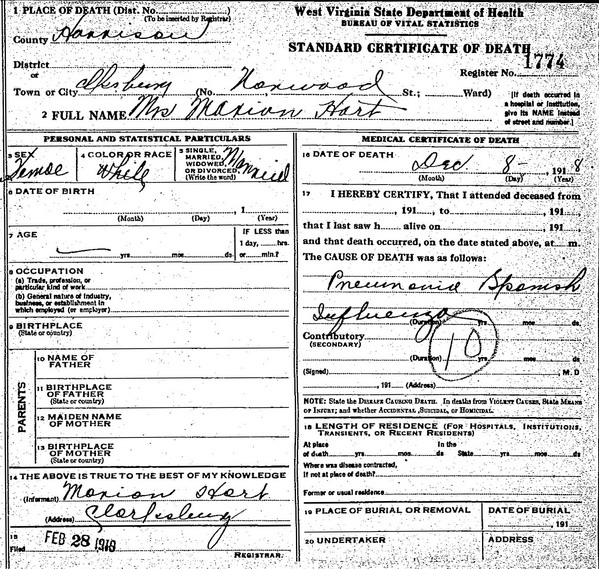 1 PLACE OF DEATH (Dist. No.
(To be inserted by Registrar)
County Harrison
District
or
Town or City Clksburg (No. Norwood St.; Ward)
2 FULL NAME Mrs Marion Hart
West Virginia State Department of Health
BUREAU OF VITAL STATISTICS
STANDARD CERTIFICATE OF DEATH
Register No. 1774
[If death occurred in
a hospital or institution,
give its NAME instead
of street and number.]
PERSONAL AND STATISTICAL PARTICULARS
3 SEX
4 COLOR OR RACE
White
5 SINGLE,
MARRIED,
WIDOWED,
OR DIVORCED.
(Write the word)
Married
6 DATE OF BIRTH
, 1
(Month) (Day) (Year)
7 AGE
yrs. mos. ds
IF LESS than
1 day, hrs.
or min.?
8 OCCUPATION
(a) Trade, profession, or
particular kind of work
(b) General nature of industry,
business, or establishment in
which employed (or employer)
9 BIRTHPLACE
(State or country)
PARENTS
10 NAME OF
FATHER
11 BIRTHPLACE
OF FATHER
(State or country)
12 MAIDEN NAME
OF MOTHER
13 BIRTHPLACE
OF MOTHER
(State or country)
14 THE ABOVE IS TRUE TO THE BEST OF MY KNOWLEDGE
(Informant) Marion Hart
(Address) Clarksburg
15
Filed FEB 28 1919
REGISTRAR.
MEDICAL CERTIFICATE OF DEATH
16 DATE OF DEATH
Dec 8- , 1918
(Month) (Day) (Year)
17 I HEREBY CERTIFY, That I attended deceased from
, 191 , to , 191 ,
that I last saw h alive on , 191 ,
and that death occurred, on the date stated above, at m.
The CAUSE OF DEATH was as follows:
Pneumonia Spanish
Influenza
(Duration) yrs. mos ds
Contributory
(SECONDARY)
10
(Duration) yrs. mos ds
(Signed) , M. D
, 191 (Address)
NOTE: State the DISEASE CAUSING DEATH. In deaths from VIOLENT CAUSES, State MEANS
OF INJURY; and whether ACCIDENTAL, SUICIDAL, OR HOMICIDAL.
18 LENGTH OF RESIDENCE (FOR HOSPITALS, INSTITUTIONS,
TRANSIENTS, OR RECENT RESIDENTS)
At place In the
of death yrs. mos. ds. State yrs. mos. ds
Where was disease contracted,
if not at place of death?
Former or usual residence
19 PLACE OF BURIAL OR REMOVAL
DATE OF BURIAL
, 191
20 UNDERTAKER
ADDRESS